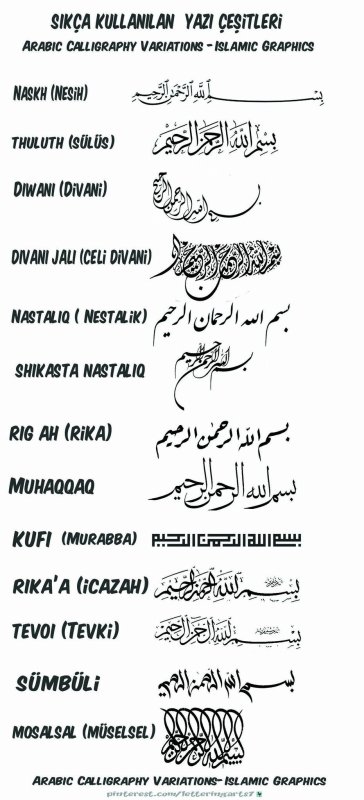 SIKÇA KULLANILAN YAZI ÇEŞİTLERİ
ARABIC CALLIGRAPHY VARIATIONS - ISLAMIC GRAPHICS
NASKH (NESİH) بِسْــمِ اللَّهِ الرَّحْمَنِ الرَّحِيمِ
THULUTH (SÜLÜS) بِسْمِ اللَّهِ الرَّحْمَنِ الرَّحِيمِ
DIWANI (DİVANİ) بسم الله الرحمن الرحيم
DIVANI JALI (CELİ DİVANİ) بسم الله الرحمن الرحيم
NASTALIQ ( NESTALİK) بسم الله الرحمان الرحيم
SHIKASTA NASTALIQ بسم الله الرحمن الرحيم
RIG AH (RİKA) بسم الله الرحمن الرحيم
MUHAQQAQ بسم الله الرحمن الرحيم
KUFI (MURABBA) بسم الله الرحمن الرحيم
RIKA'A (İCAZAH) بسم الله الرحمن الرحيم
TEVOI (TEVKİ) بسم الله الرحمن الرحيم
SÜMBÜLİ بسم الله الرحمن الرحيم
MOSALSAL (MÜSELSEL) بسم الله الرحمن الرحيم
ARABIC CALLIGRAPHY VARIATIONS- ISLAMIC GRAPHICS
pinterest.com/letteringarts7